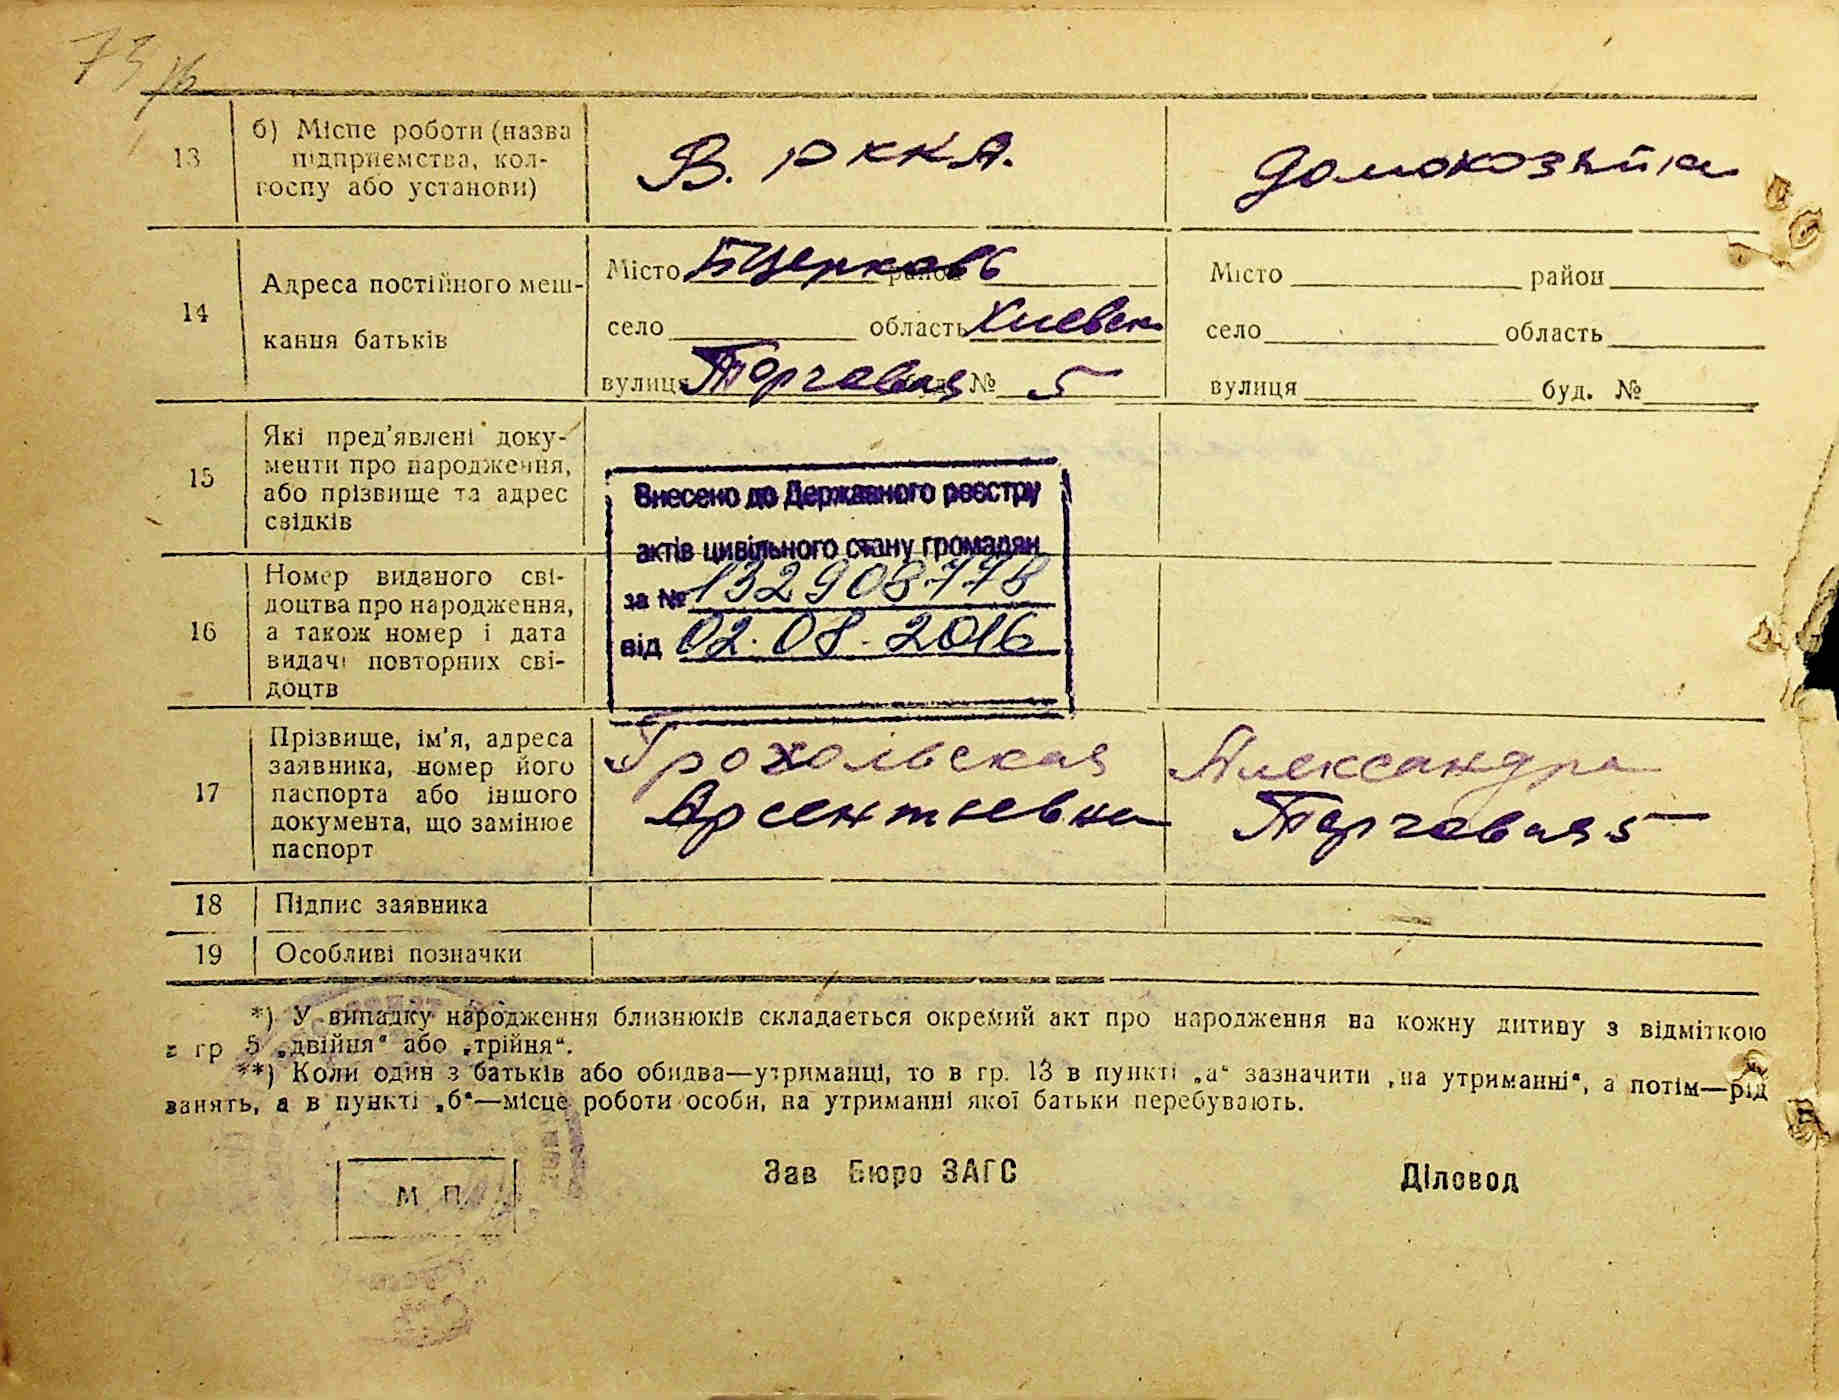 73
13
б) Місце роботи (назва
підприємства, кол-
госпу або установи)
В. РККА.
Домохозяйка
14
Адреса постійного меш-
кання батьків
Місто БЦерковь район
село область Киевск.
вулиця Торговая буд. № 5
Місто район
село область
вулиця буд. №
15
Які пред'явлені доку-
менти про народження,
або прізвище та адрес
свідків
Внесено до Державного реєстру
актів цивільного стану громадян
за № 132908778
від 02.08.2016
16
Номер виданого сві-
доцтва про народження,
а також номер і дата
видачі повторних сві-
доцтв
17
Прізвище, ім'я, адреса
заявника, номер його
паспорта або іншого
документа, що замінює
паспорт
Грохольская Александра
Арсентьевна Торговая 5
18 Підпис заявника
19 Особливі позначки
*) У випадку народження близнюків складається окремий акт про народження на кожну дитину з відміткою
в гр 5 „двійня“ або „трійня“.
**) Коли один з батьків або обидва—утриманці, то в гр. 13 в пункті „а“ зазначити „на утриманні“, а потім—рід
занять, а в пункті „б“—місце роботи особи, на утриманні якої батьки перебувають.
М П.
Зав Бюро ЗАГС
Діловод